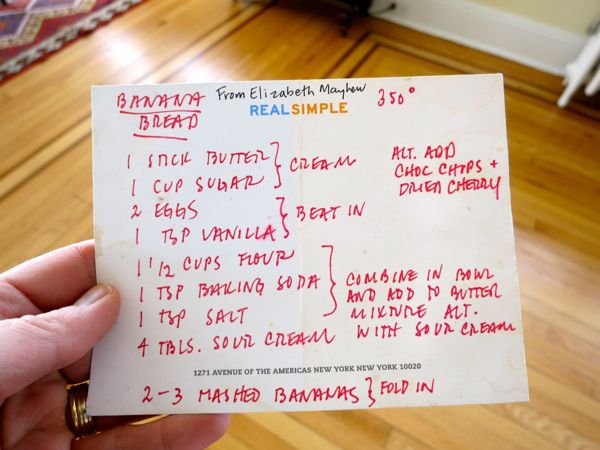 BANANA BREAD
From Elizabeth Mayhew
REAL SIMPLE
350°
1 STICK BUTTER
1 CUP SUGAR
CREAM
ALT. ADD
CHOC CHIPS +
DRIED CHERRY
2 EGGS
1 TSP VANILLA
BEAT IN
1 1/2 CUPS FLOUR
1 TSP BAKING SODA
1 TSP SALT
COMBINE IN BOWL
AND ADD TO BUTTER
MIXTURE ALT.
WITH SOUR CREAM
4 TBLS. SOUR CREAM
1271 AVENUE OF THE AMERICAS NEW YORK NEW YORK 10020
2-3 MASHED BANANAS } FOLD IN